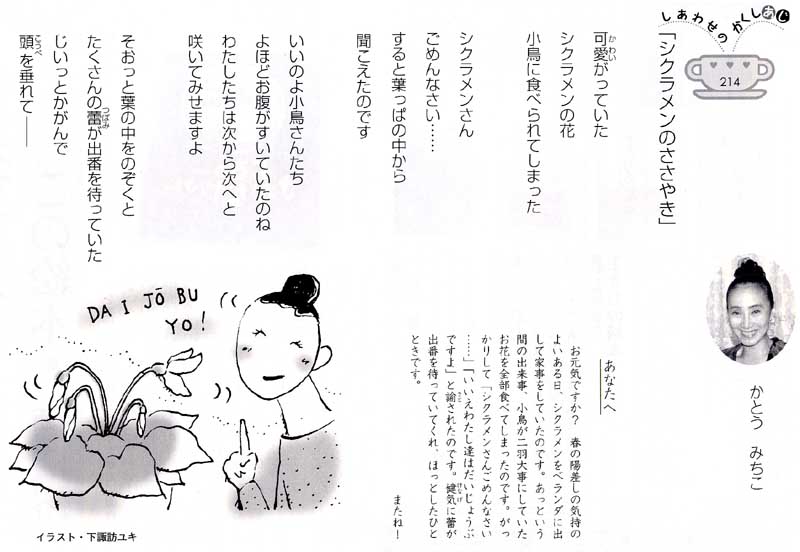 しあわせのかくしあじ
214
「シクラメンのささやき」
可愛がっていた
かわい
シクラメンの花
小鳥に食べられてしまった
シクラメンさん
ごめんなさい……
すると葉っぱの中から
聞こえたのです
いいのよ小鳥さんたち
よほどお腹がすいていたのね
わたしたちは次から次へと
咲いてみせますよ
そおっと葉の中をのぞくと
たくさんの蕾が出番を待っていた
つぼみ
じいっとかがんで
頭を垂れて――
こうべ
かとう みちこ
あなたへ
お元気ですか? 春の陽差しの気持の
よいある日、シクラメンをベランダに出
して家事をしていたのです。あっという
間の出来事、小鳥が二羽大事にしていた
お花を全部食べてしまったのです。がっ
かりして「シクラメンさんごめんなさい
……」「いいえわたし達はだいじょうぶ
ですよ」と諭されたのです。健気に蕾が
さと
けなげ
出番を待っていてくれ、ほっとしたひと
ときです。
またね!
DAIJŌBU
YO!
イラスト・下諏訪ユキ